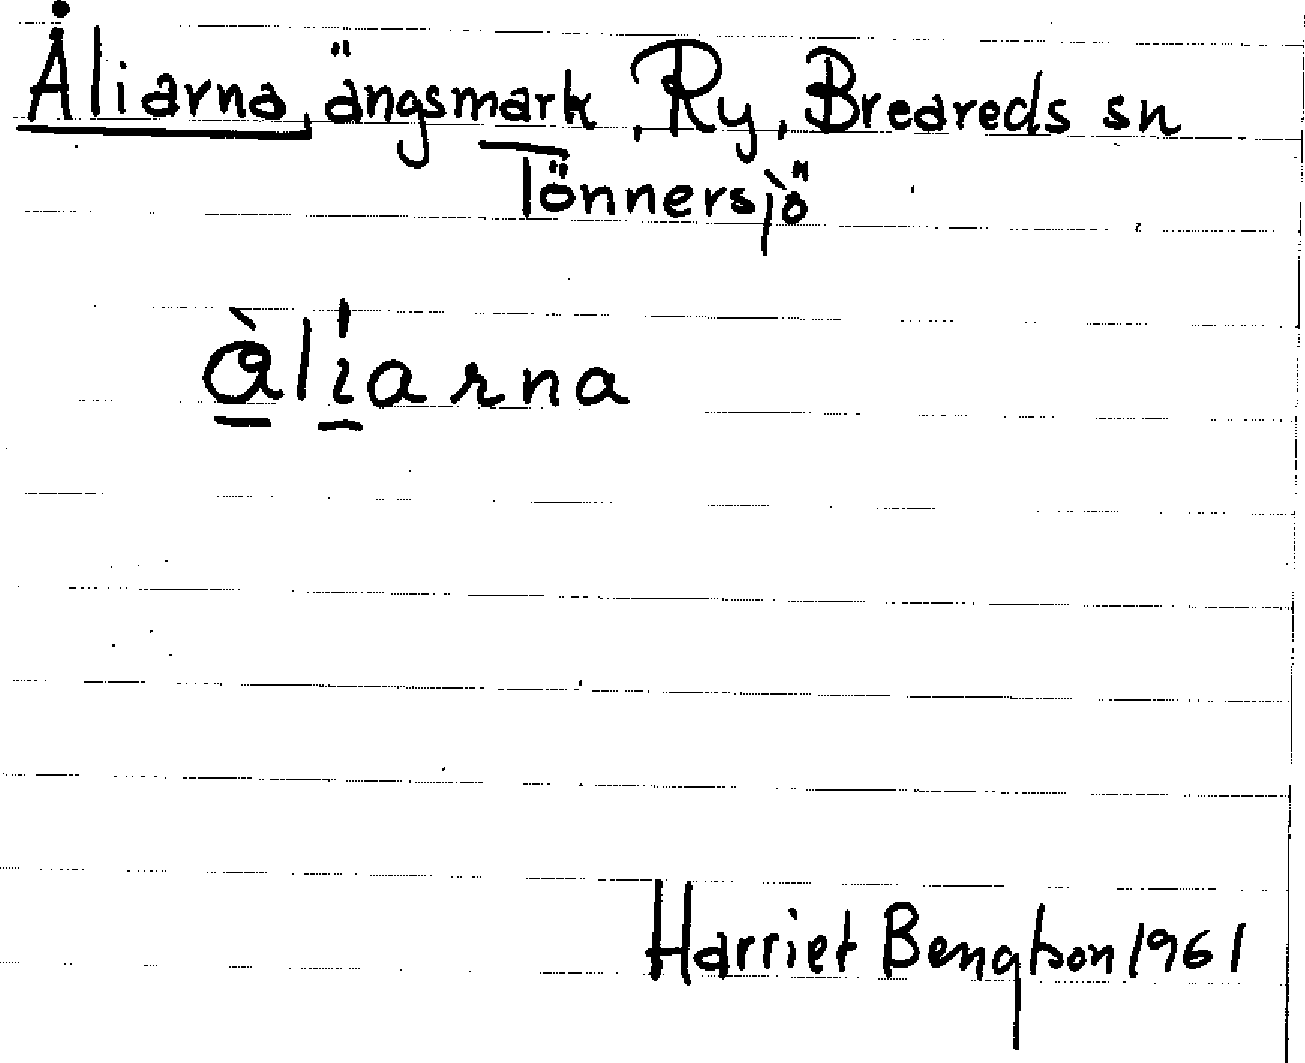 Åliarna, ängsmark, Ry, Breareds sn
Tönnersjö
àlíarna
Harriet Bengtson 1961